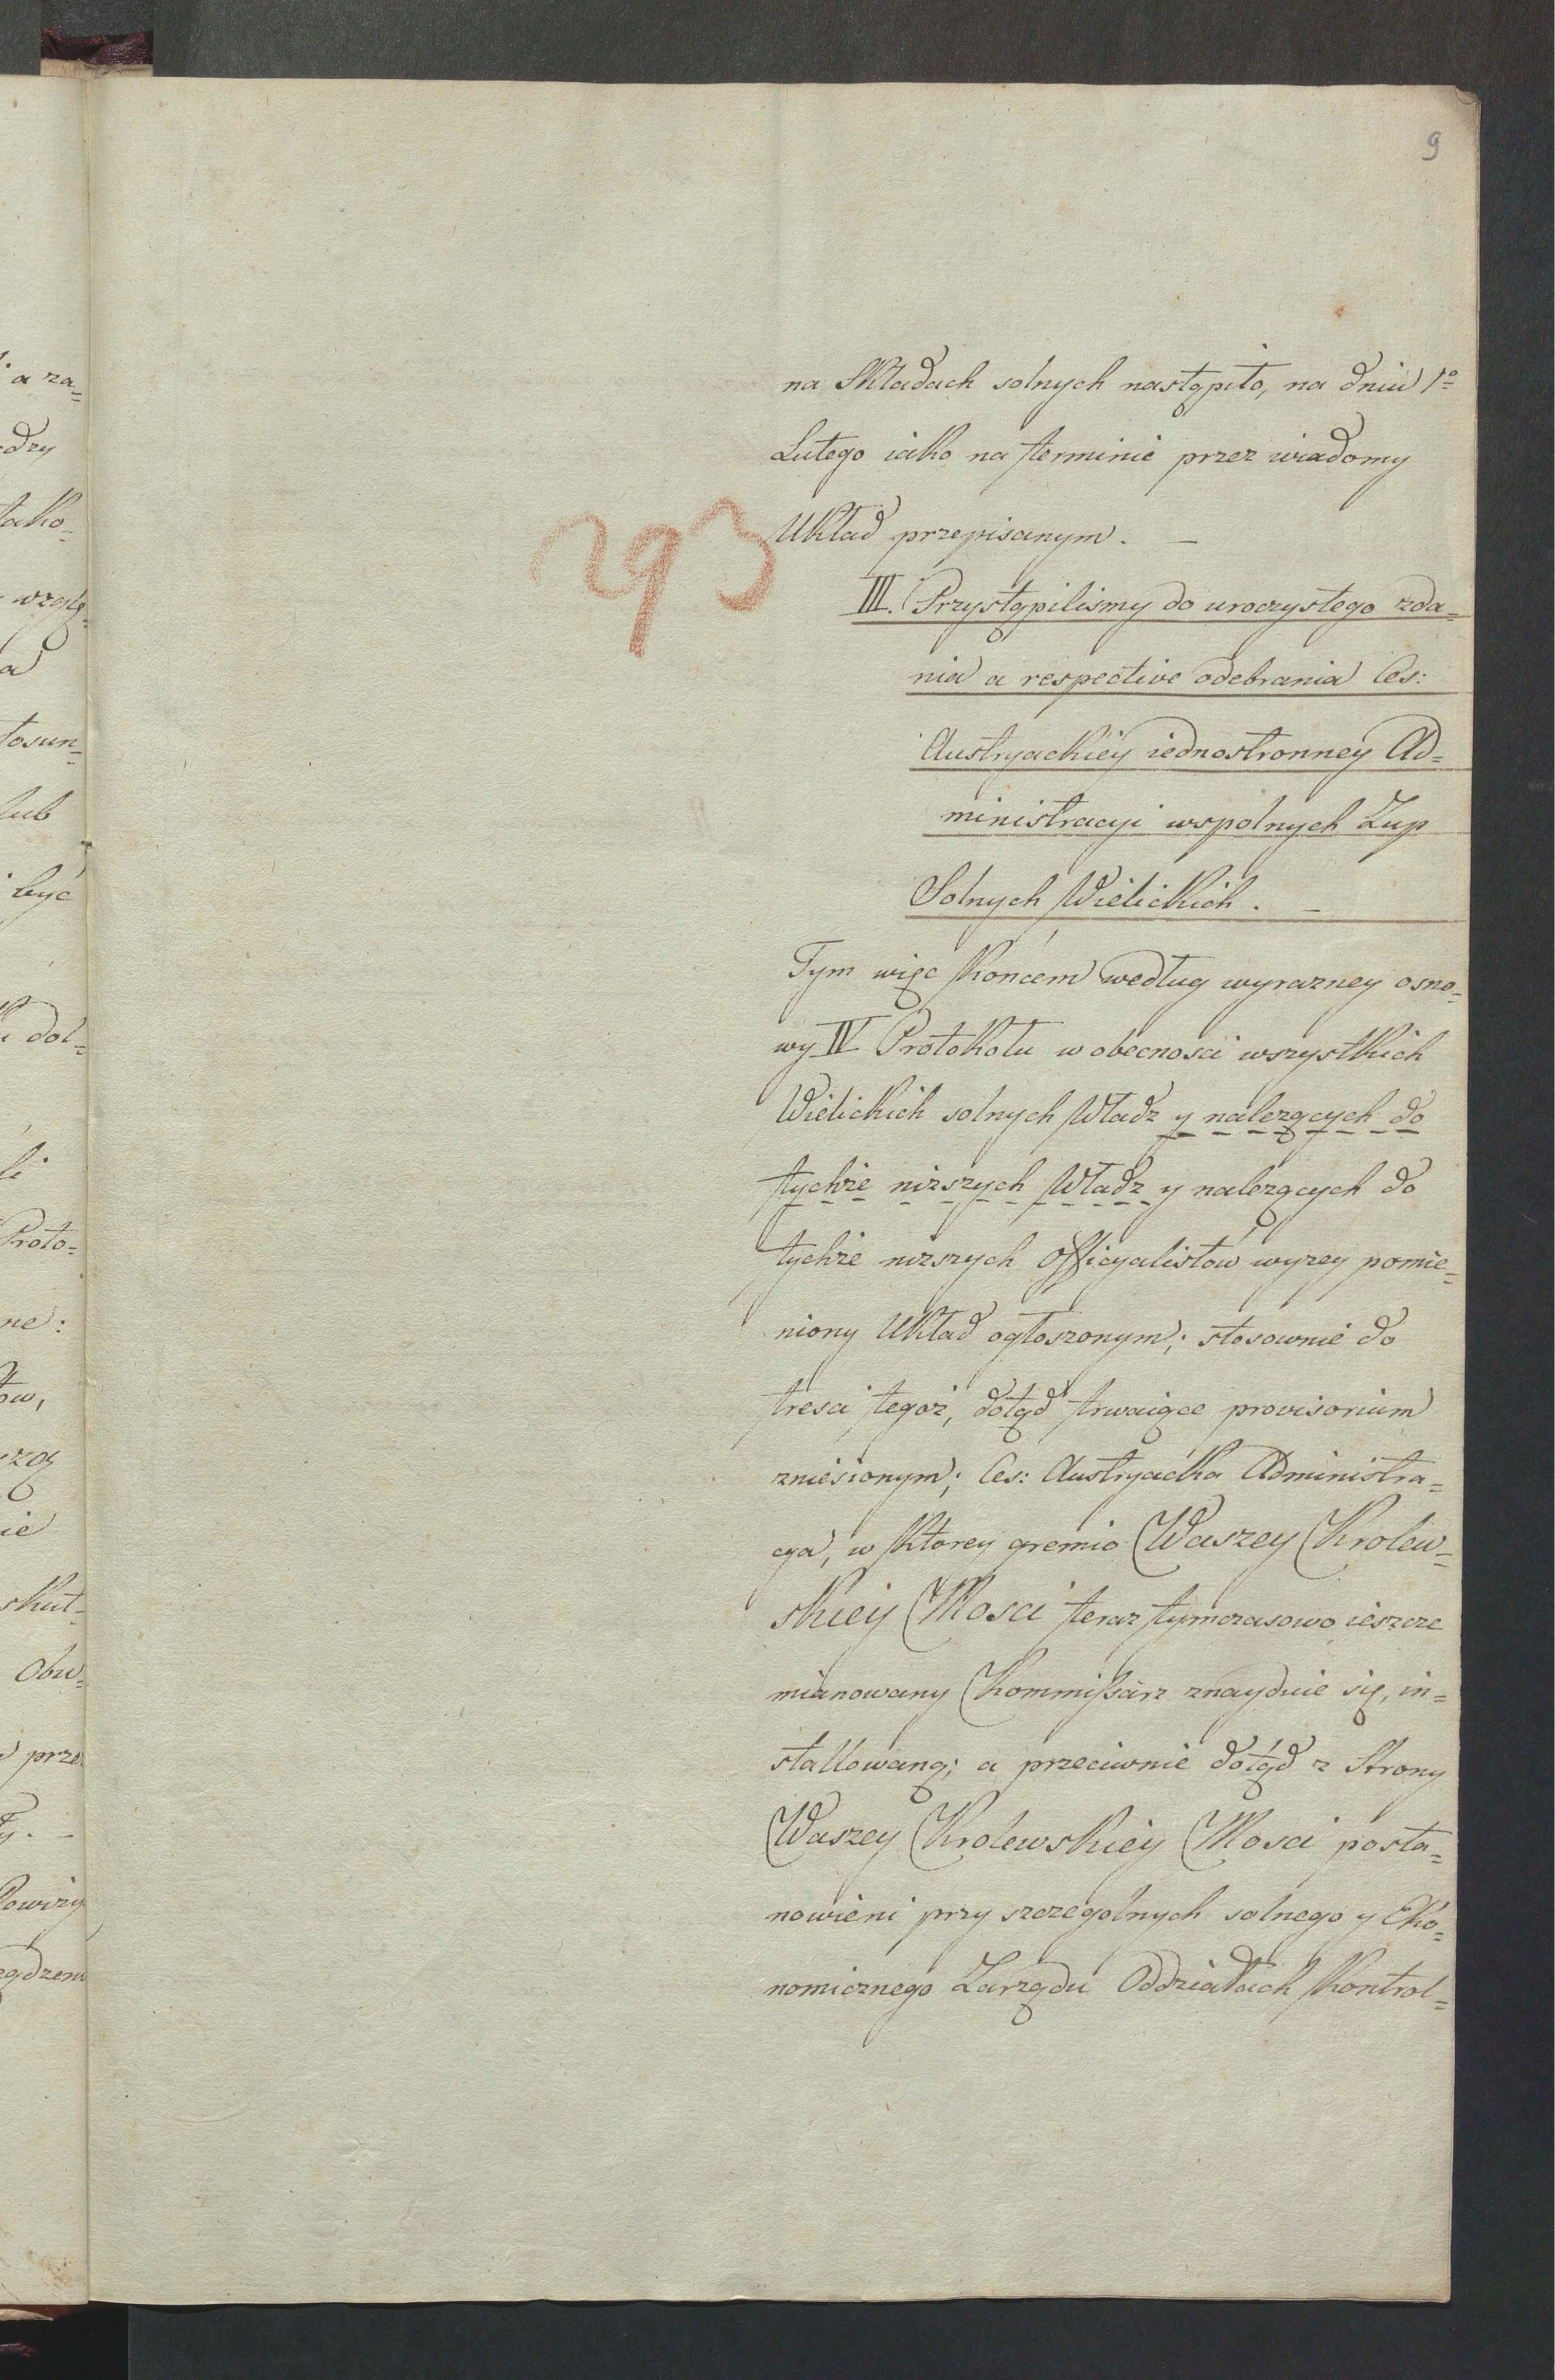 9
na Składach solnych nastąpiło, na dniu 1º
Lutego iako na terminie przez wiadomy
Układ przepisanym. –
293
III. Przystąpilismy do uroczystego zda=
nia a respective odebrania Ces:
Austryackiéy iednostronnéy Ad=
ministracyi wspolnych Zup
Solnych Wielickich. –
Tym więc końcem według wyrazney osno=
wy IV Protokołu w obecnosci wszystkich
Wielickich solnych Władz y nalezących do
tychże niższych Władz y nalezących do
tychże nizszych Officyalistów wyzey pomie=
niony Układ ogłoszonym; stosownie do
tresci tegoż, dotąd trwaiące provisorium
zniesionym; Ces: Austryacka Administra=
cya, w ktorey gremio Waszey Krolew=
skiéy Mosci teraz tymczasowo ieszcze
mianowany Kommissarz znayduie się, in=
stallowaną; a przeciwnie dotąd z Strony
Waszey Krolewskiéy Mosci posta=
nowieni przy szczegolnych solnego y Eko=
nomicznego Zarządu Oddziałach Kontrol=
a za=
dzy
tako=
wzglę=
a
tosun=
lub
być
dol=
li
Proto=
ne:
ów,
ie
skut=
Obw=
prze